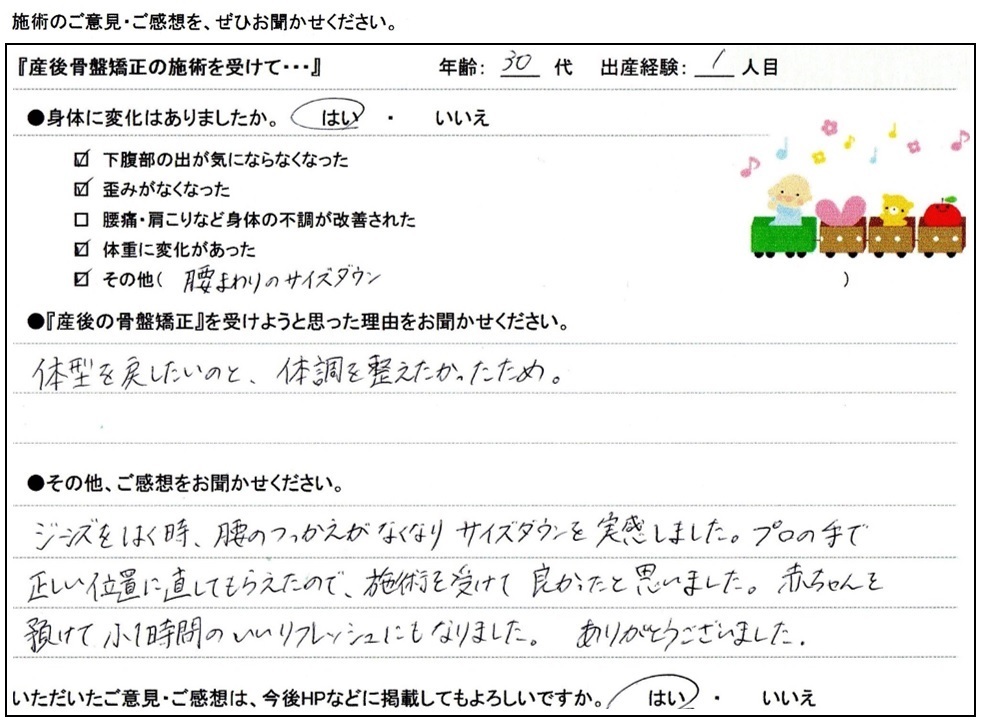 施術のご意見・ご感想を、ぜひお聞かせください。
『産後骨盤矯正の施術を受けて・・・』 年齢: 30 代 出産経験: 1 人目
●身体に変化はありましたか。 はい ・ いいえ
☑ 下腹部の出が気にならなくなった
☑ 歪みがなくなった
□ 腰痛・肩こりなど身体の不調が改善された
☑ 体重に変化があった
☑ その他( 腰まわりのサイズダウン )
●『産後の骨盤矯正』を受けようと思った理由をお聞かせください。
体型を戻したいのと、体調を整えたかったため。
●その他、ご感想をお聞かせください。
ジーンズをはく時、腰のつっかえがなくなりサイズダウンを実感しました。プロの手で
正しい位置に直してもらえたので、施術を受けて良かったと思いました。赤ちゃんを
預けて小1時間のいいリフレッシュにもなりました。 ありがとうございました.
いただいたご意見・ご感想は、今後HPなどに掲載してもよろしいですか。 はい ・ いいえ